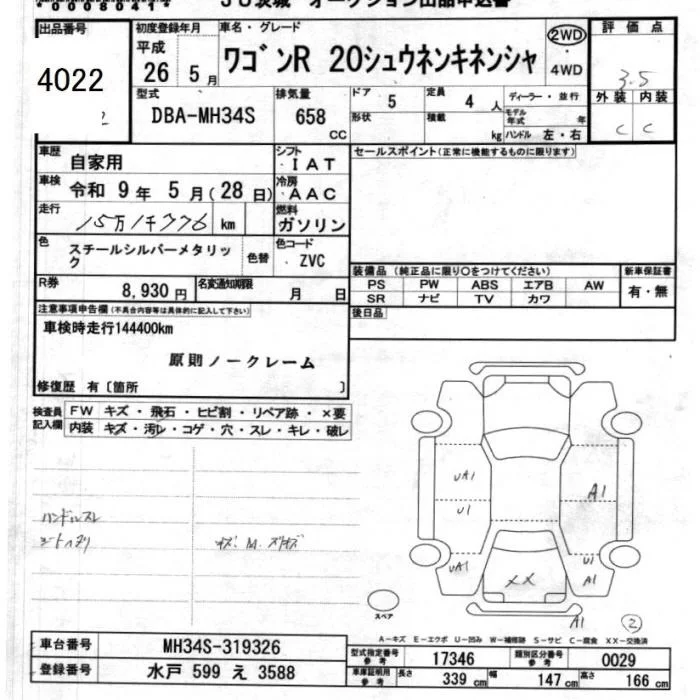 JU茨城 オークション出品申込書
出品番号 初度登録年月 車名・グレード 評価点
4022 平成 26 5月 ワゴンR 20シュウネンキネンシャ 2WD ・ 4WD 3.5
型式 排気量 ドア 5 定員 4人 ディーラー・並行 外装 内装
DBA-MH34S 658 CC 形状 積載 kg モデル年式 年 C C
ハンドル 左・右
車歴 自家用 シフト IAT セールスポイント(正常に機能するものに限ります)
車検 令和 9年 5月(28日) 冷房 AAC
走行 15万1千776 km 燃料 ガソリン
色 スチールシルバーメタリック 色替 色コード ZVC
装備品 (純正品に限り○をつけてください) 新車保証書
R券 8,930円 名変通知期限 月 日
PS PW ABS エアB AW 有・無
SR ナビ TV カワ
注意事項申告欄(不具合内容等は具体的に記入して下さい)
後日品
車検時走行144400km
原則ノークレーム
修復歴 有〔箇所 〕
検査員記入欄 FW キズ・飛石・ヒビ割・リペア跡・×要
内装 キズ・汚レ・コゲ・穴・スレ・キレ・破レ
UA1
A1
U1
ハンドルスレ
UA1
U1
A1
XX
スペア
A1
2
A-キズ E-エクボ U-凹み W-補修跡 S-サビ C-腐食 XX-交換済
車台番号 MH34S-319326 型式指定番号 参考 17346 類別区分番号 参考 0029
登録番号 水戸 599 え 3588 車庫証明用 参考 長さ 339 cm 幅 147 cm 高さ 166 cm